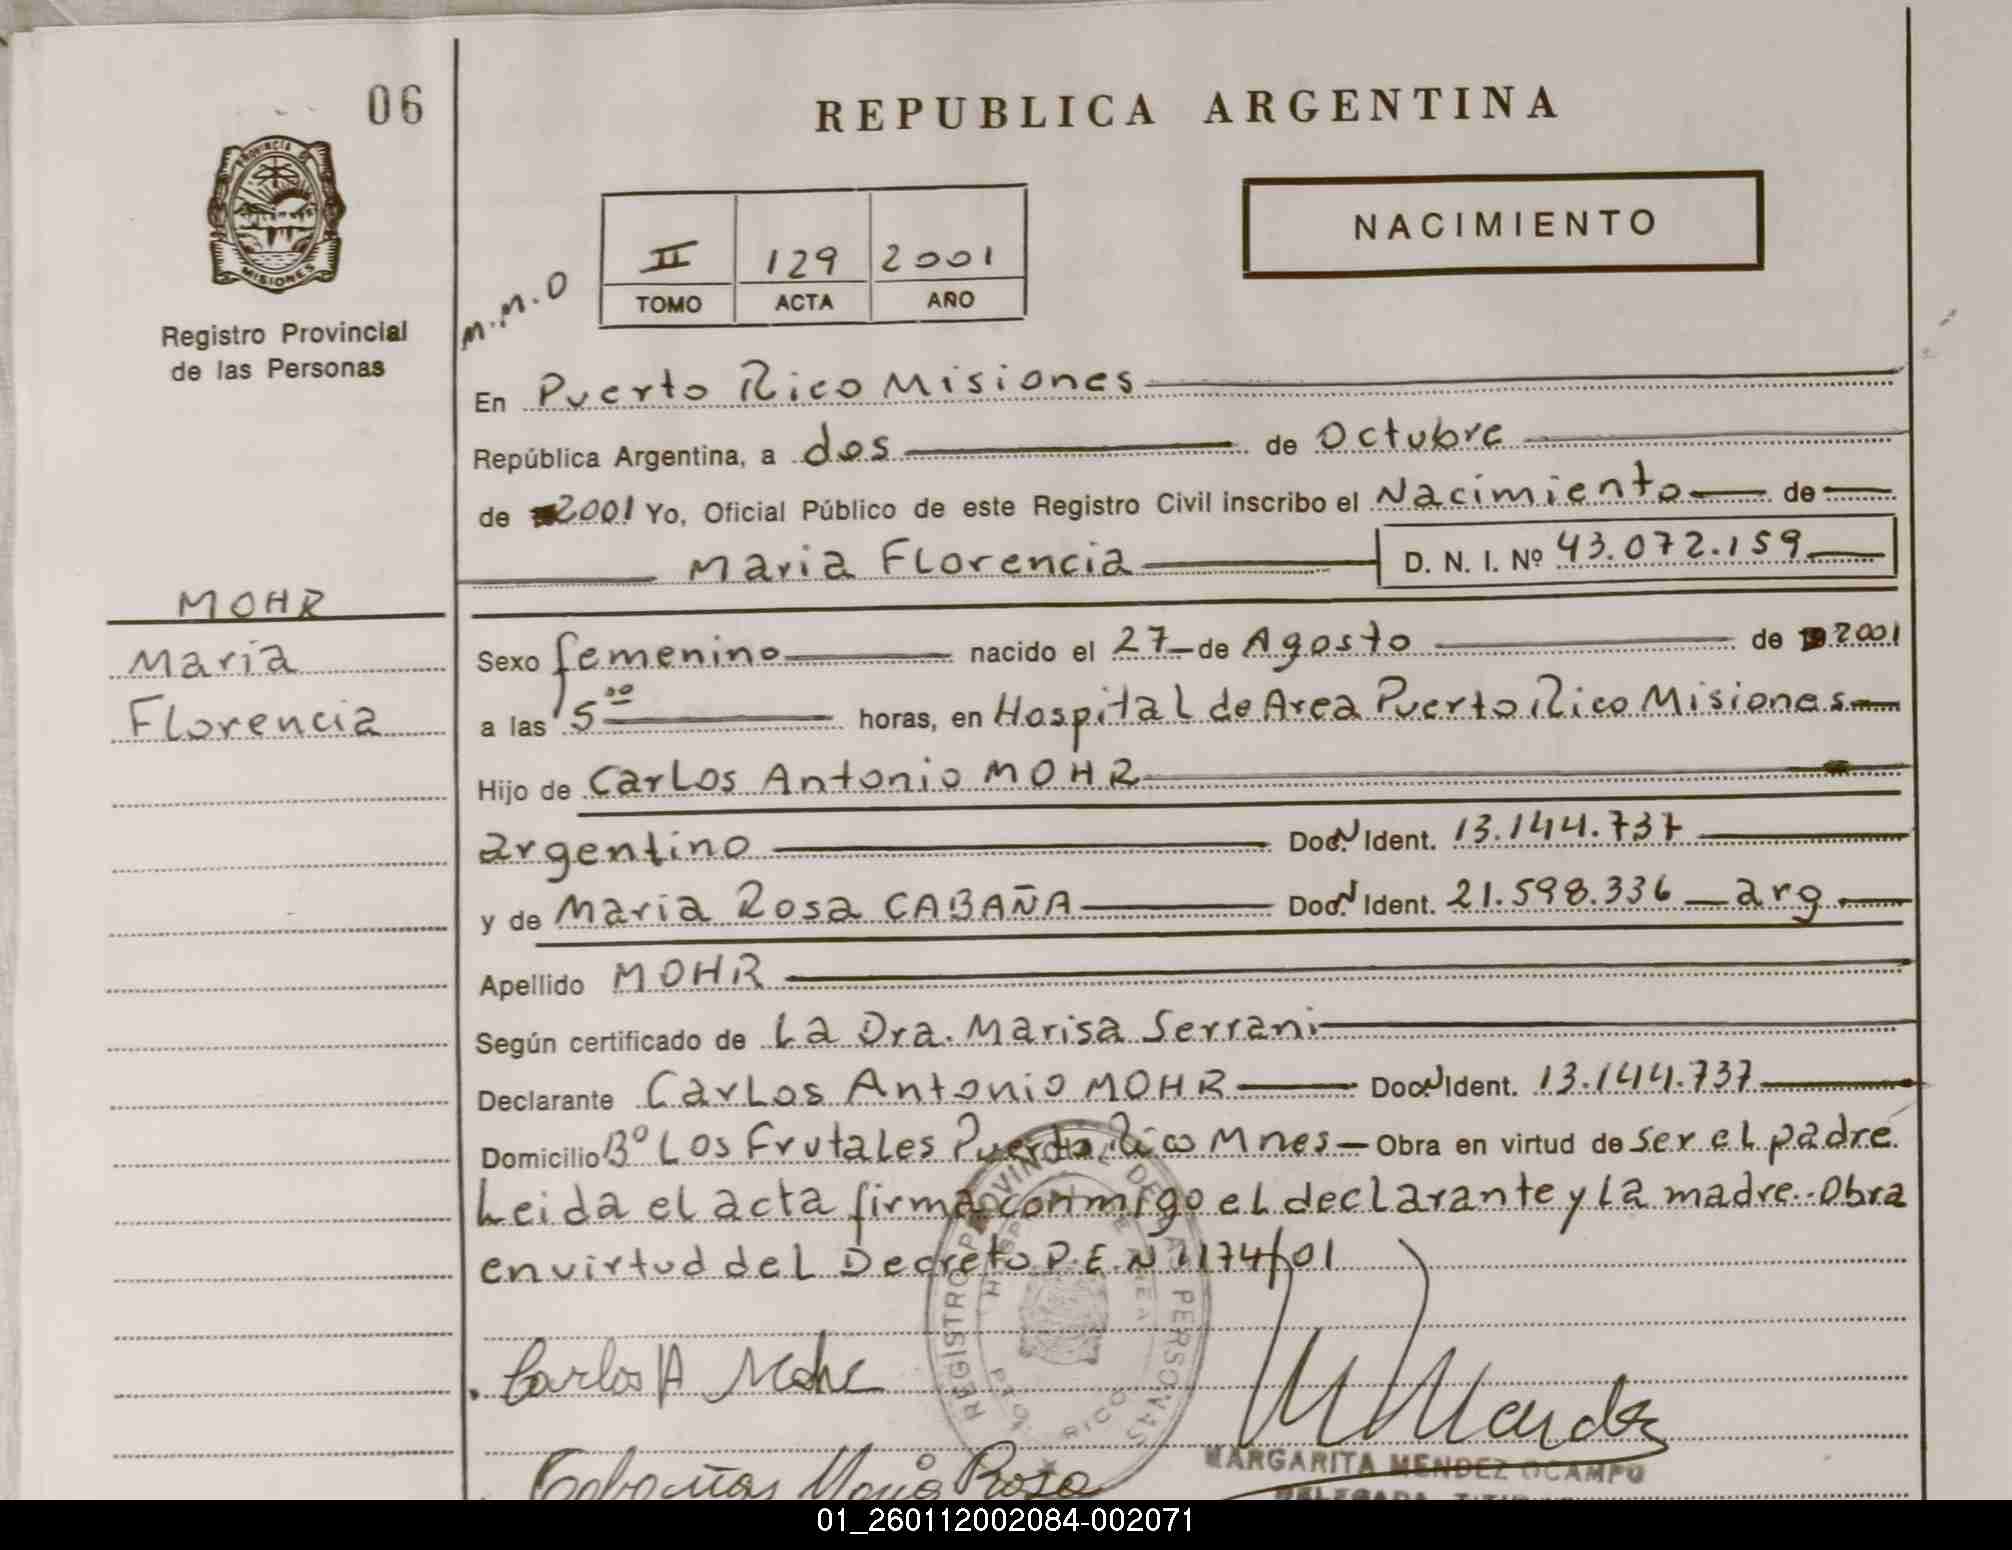 06
REPUBLICA ARGENTINA
PROVINCIA DE
MISIONES
Registro Provincial
de las Personas
NACIMIENTO
II 129 2001
TOMO ACTA AÑO
M.M.O
En Puerto Rico Misiones
República Argentina, a dos de Octubre
de 2001 Yo, Oficial Público de este Registro Civil inscribo el Nacimiento de
Maria Florencia D. N. I. Nº 43.072.159
MOHR
Maria
Florencia
Sexo femenino nacido el 27 de Agosto de 2001
a las 5 00 horas, en Hospital de Area Puerto Rico Misiones
Hijo de Carlos Antonio MOHR
argentino Doc. N Ident. 13.144.737
y de Maria Rosa CABAÑA Doc. N Ident. 21.598.336 arg
Apellido MOHR
Según certificado de La Dra. Marisa Serrani
Declarante Carlos Antonio MOHR Doc. N Ident. 13.144.737
Domicilio Bº Los Frutales Puerto Rico Mnes Obra en virtud de ser el padre
Leida el acta firma conmigo el declarante y la madre.-Obra
en virtud del Decreto P.E.N 1174/01
REGISTRO PROVINCIAL DE LAS PERSONAS
Carlos A Mohr
M Mendez
Cabañas Maria Rosa
MARGARITA MENDEZ OCAMPO
DELEGADA
01_260112002084-002071